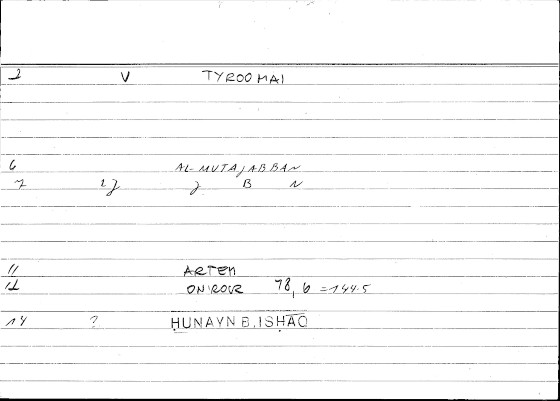 2 V TYROOMAI
6 AL-MUTAJABBAN
7 lj j B N
11 ARTEM
12 ONIROCR 78, 6 = 144.5
14 ? ḤUNAYN B. ISḤĀQ